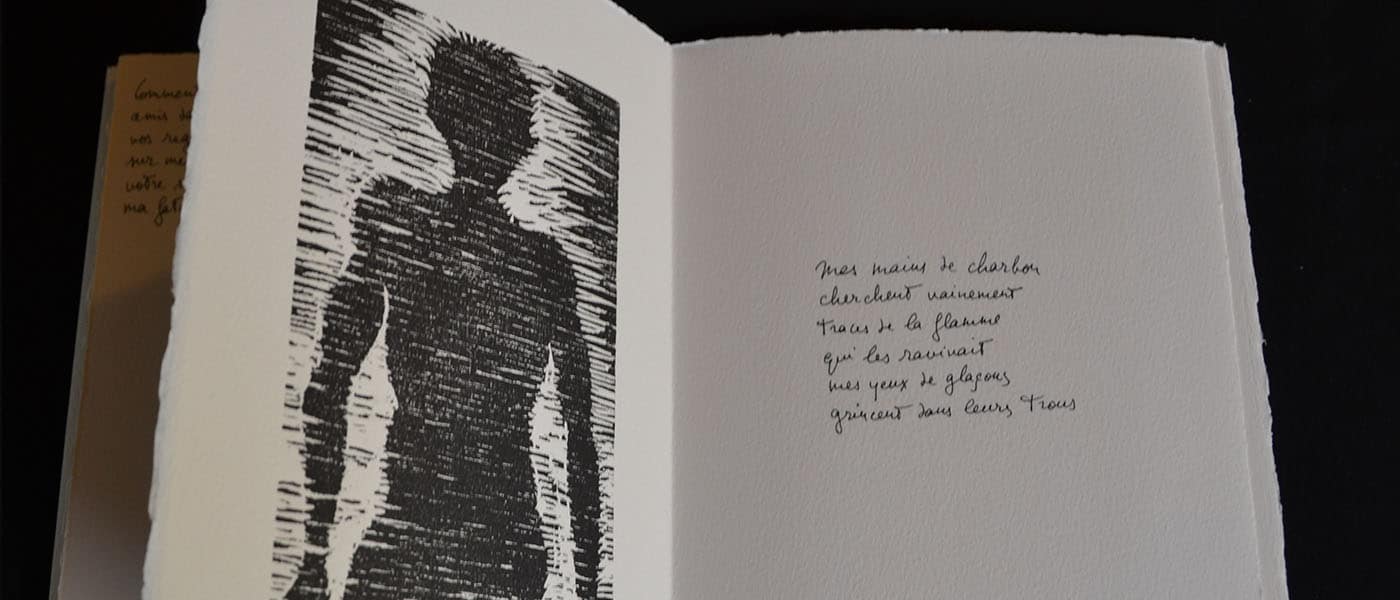 Commen
amis d
vos reg
sur me
votre
ma fat
mes mains de charbon
cherchent vainement
traces de la flamme
qui les ravinait
mes yeux de glaçons
grincent dans leurs trous